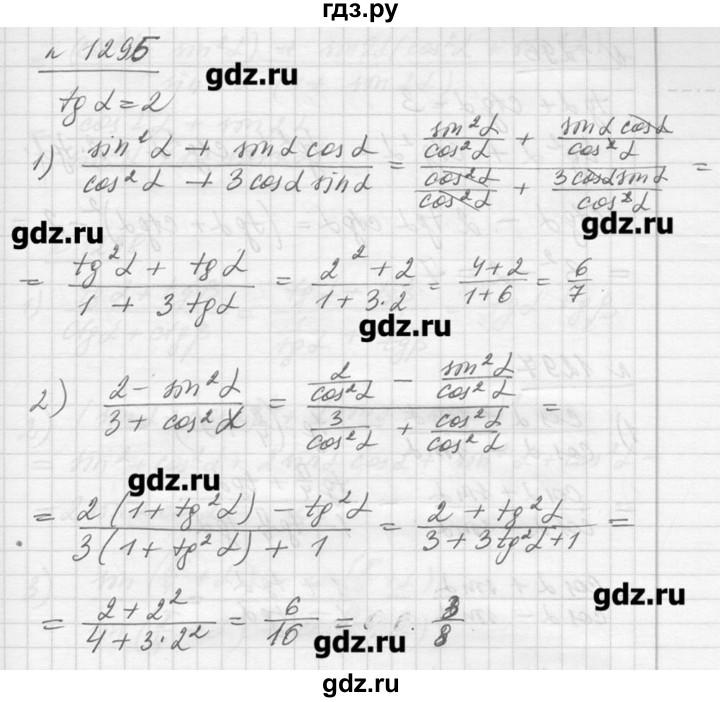 гдз.ру
n 1295
gdz.ru
tg α = 2
1) (sin²α + sinα cosα)/(cos²α + 3cosα sinα) = (sin²α/cos²α + sinα cosα/cos²α)/(cos²α/cos²α + 3cosα sinα/cos²α) =
gdz.ru gdz.ru
= (tg²α + tgα)/(1 + 3tgα) = (2² + 2)/(1 + 3·2) = (4+2)/(1+6) = 6/7
gdz.ru
2) (2 - sin²α)/(3 + cos²α) = (2/cos²α - sin²α/cos²α)/(3/cos²α + cos²α/cos²α) =
gdz.ru
= (2(1 + tg²α) - tg²α)/(3(1 + tg²α) + 1) = (2 + tg²α)/(3 + 3tg²α + 1) =
gdz.ru
= (2 + 2²)/(4 + 3·2²) = 6/16 = 3/8
gdz.ru
gdz.ru